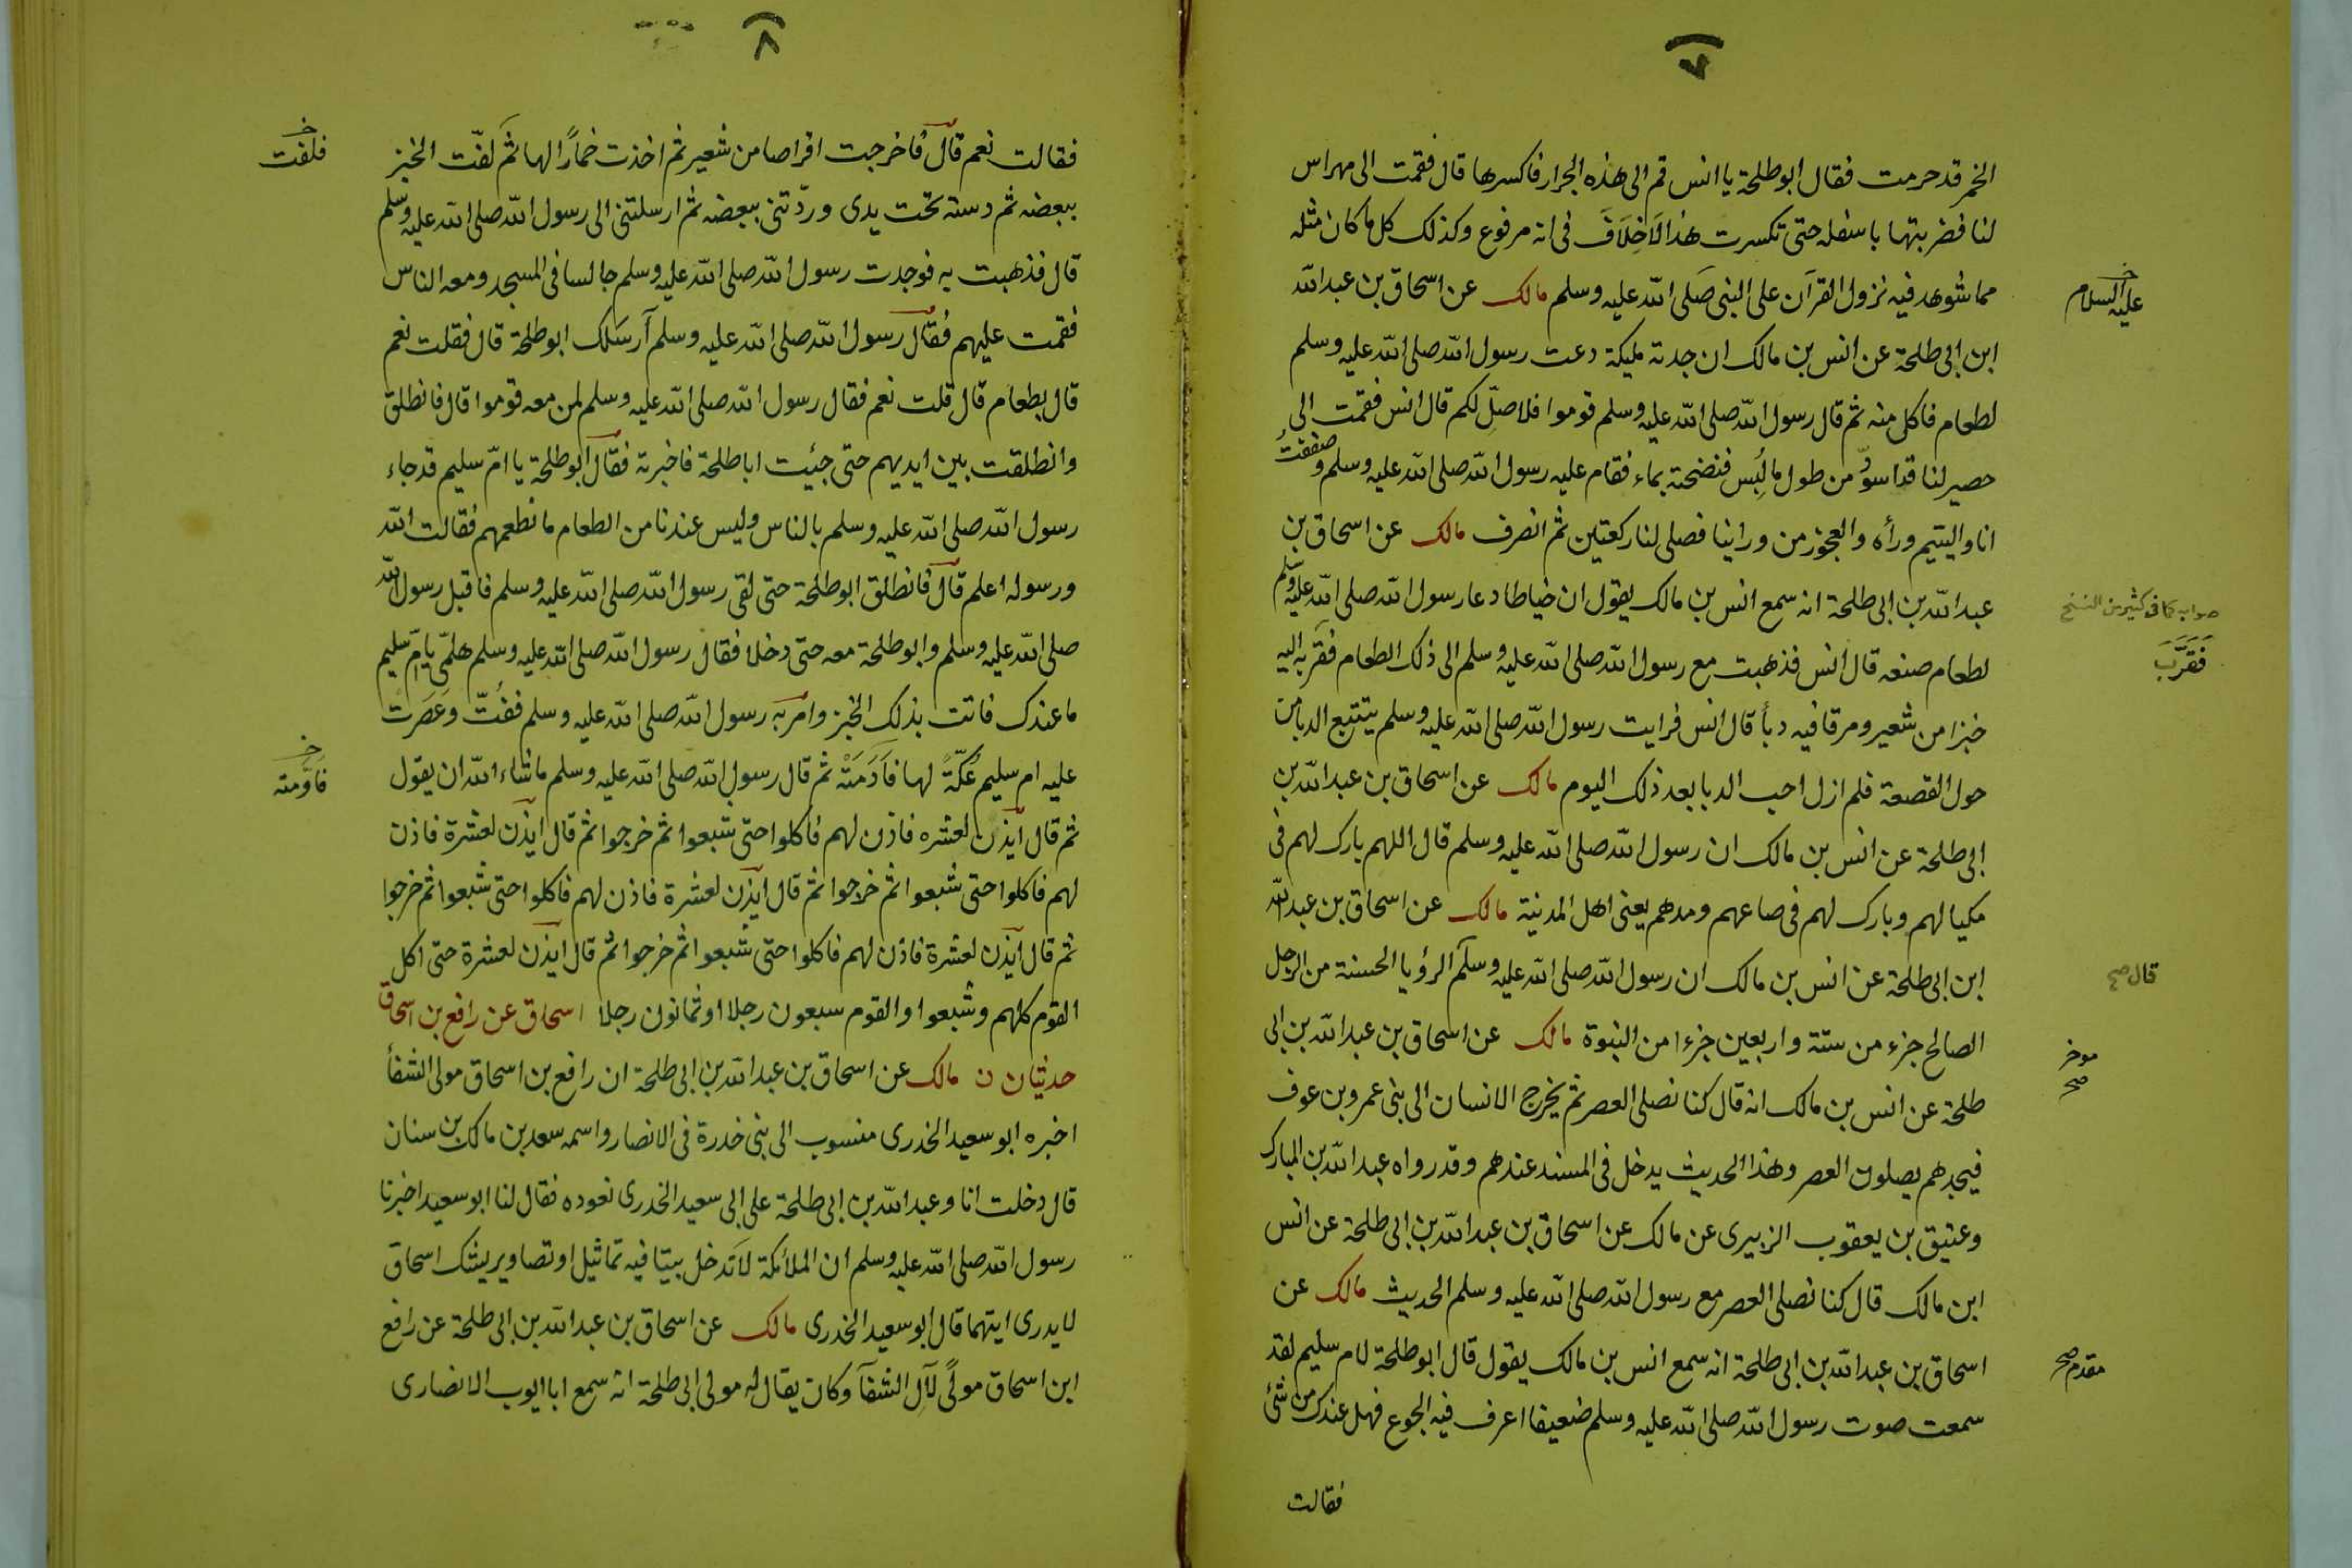 ٧
الخمر قد حرمت فقال ابو طلحة يا انس قم الى هذه الجرار فاكسرها قال فقمت الى مهراس
لنا فضربتها باسفله حتى تكسرت هذا لاخلاف فى انه مرفوع وكذلك كل ما كان مثله
مما شوهد فيه نزول القرآن على النبى صلى الله عليه وسلم مالك عن اسحاق بن عبد الله
عليه السلام خ
ابن ابى طلحة عن انس بن مالك ان جدته مليكة دعت رسول الله صلى الله عليه وسلم
لطعام فاكل منه ثم قال رسول الله صلى الله عليه وسلم قوموا فلاصلّ لكم قال انس فقمت الى
حصير لنا قد اسودّ من طول ما لُبِس فنضحته بماء فقام عليه رسول الله صلى الله عليه وسلم وصففتُ
انا واليتيم ورأه والعجوز من ورائنا فصلى لنا ركعتين ثم انصرف مالك عن اسحاق بن
عبد الله بن ابى طلحة انه سمع انس بن مالك يقول ان خياطا دعا رسول الله صلى الله عليه وسلم
صوابه كما فى كثير من النسخ
فَقَرَّبَ
لطعام صنعه قال انس فذهبت مع رسول الله صلى الله عليه وسلم الى ذلك الطعام فقربه اليه
خبزا من شعير ومرقا فيه دبأ قال انس فرايت رسول الله صلى الله عليه وسلم يتتبع الدبا من
حول القصعة فلم ازل احب الدبا بعد ذلك اليوم مالك عن اسحاق بن عبد الله بن
ابى طلحة عن انس بن مالك ان رسول الله صلى الله عليه وسلم قال اللهم بارك لهم فى
مكيالهم وبارك لهم فى صاعهم ومدهم يعنى اهل المدينة مالك عن اسحاق بن عبد الله
ابن ابى طلحة عن انس بن مالك ان رسول الله صلى الله عليه وسلم الرؤيا الحسنة من الرجل
قال صح
الصالح جزء من ستة واربعين جزءا من النبوة مالك عن اسحاق بن عبد الله بن ابى
موخر
صح
طلحة عن انس بن مالك انه قال كنا نصلى العصر ثم يخرج الانسان الى بنى عمرو بن عوف
فيجدهم يصلون العصر وهذا الحديث يدخل فى المسند عندهم وقد رواه عبد الله بن المبارك
وعتيق بن يعقوب الزبيرى عن مالك عن اسحاق بن عبد الله بن ابى طلحة عن انس
ابن مالك قال كنا نصلى العصر مع رسول الله صلى الله عليه وسلم الحديث مالك عن
اسحاق بن عبد الله بن ابى طلحة انه سمع انس بن مالك يقول قال ابو طلحة لام سليم لقد
مقدم صح
سمعت صوت رسول الله صلى الله عليه وسلم ضعيفا اعرف فيه الجوع فهل عندك من شئ
فقالت
٨
فقالت نعم قال فاخرجت اقراصا من شعير ثم اخذت خمارًا لها ثم لفّت الخبز
فلفت خ
ببعضه ثم دسته تحت يدى وردّتنى ببعضه ثم ارسلتنى الى رسول الله صلى الله عليه وسلم
قال فذهبت به فوجدت رسول الله صلى الله عليه وسلم جالسا فى المسجد ومعه الناس
فقمت عليهم فقال رسول الله صلى الله عليه وسلم آرسلك ابو طلحة قال فقلت نعم
قال بطعام قال قلت نعم فقال رسول الله صلى الله عليه وسلم لمن معه قوموا قال فانطلق
وانطلقت بين ايديهم حتى جئيت ابا طلحة فاخبرته فقال ابو طلحة يا امّ سليم قد جاء
رسول الله صلى الله عليه وسلم بالناس وليس عندنا من الطعام ما نطعمهم فقالت الله
ورسوله اعلم قال فانطلق ابو طلحة حتى لقى رسول الله صلى الله عليه وسلم فاقبل رسول الله
صلى الله عليه وسلم وابو طلحة معه حتى دخلا فقال رسول الله صلى الله عليه وسلم هلمّى يا امّ سليم
ما عندك فاتت بذلك الخبز وامر به رسول الله صلى الله عليه وسلم ففُتّ وعَصَرت
عليه ام سليم عُكّةً لها فآدَمَتْه ثم قال رسول الله صلى الله عليه وسلم ما شاء الله ان يقول
فادّمته خ
ثم قال ايذن لعشره فاذن لهم فاكلوا حتى شبعوا ثم خرجوا ثم قال ايذن لعشرة فاذن
لهم فاكلوا حتى شبعوا ثم خرجوا ثم قال ايذن لعشرة فاذن لهم فاكلوا حتى شبعوا ثم خرجوا
ثم قال ايذن لعشرة فاذن لهم فاكلوا حتى شبعوا ثم خرجوا ثم قال ايذن لعشرة حتى اكل
القوم كلهم وشبعوا والقوم سبعون رجلا او ثمانون رجلا اسحاق عن رافع بن اسحاق
حديثان ن مالك عن اسحاق بن عبد الله بن ابى طلحة ان رافع بن اسحاق مولى الشفأ
اخبره ابو سعيد الخدرى منسوب الى بنى خدرة فى الانصار واسمه سعد بن مالك بن سنان
قال دخلت انا وعبد الله بن ابى طلحة على ابى سعيد الخدرى نعوده فقال لنا ابو سعيد اخبرنا
رسول الله صلى الله عليه وسلم ان الملائكة لا تدخل بيتا فيه تماثيل او تصاوير يشك اسحاق
لا يدرى ايتهما قال ابو سعيد الخدرى مالك عن اسحاق بن عبد الله بن ابى طلحة عن رافع
ابن اسحاق مولًى لآل الشفآ وكان يقال له مولى ابى طلحة انه سمع ابا ايوب الانصارى